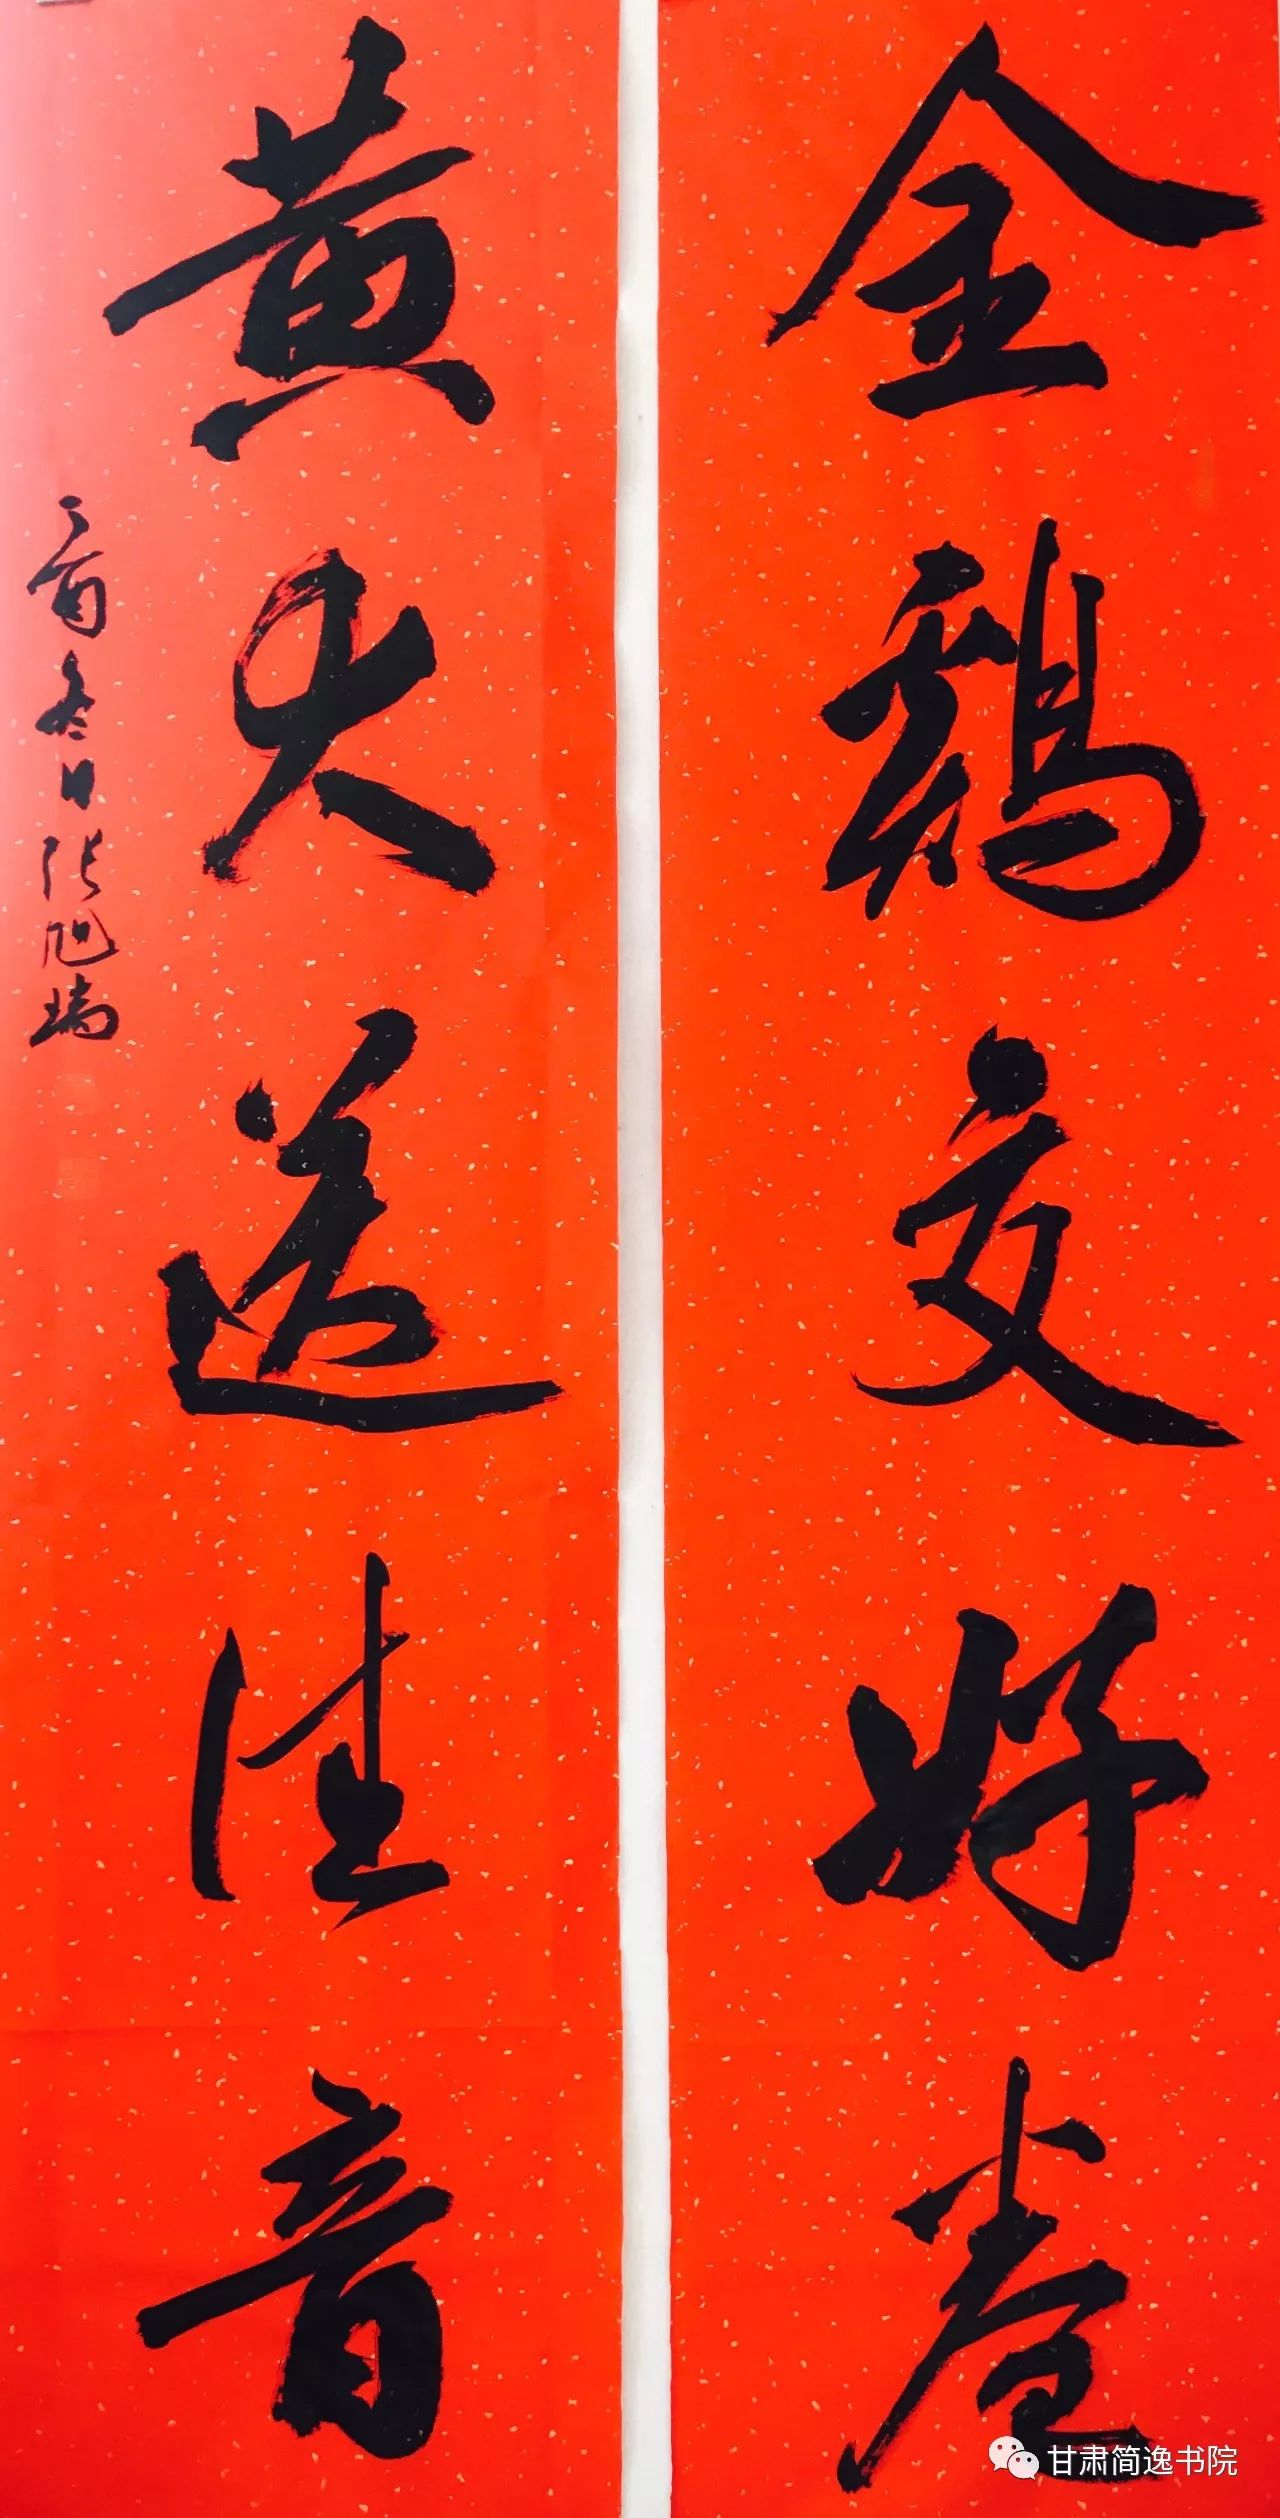 金鷄交好卷
黄犬送佳音
丁酉冬日张旭瑞
甘肃简逸书院